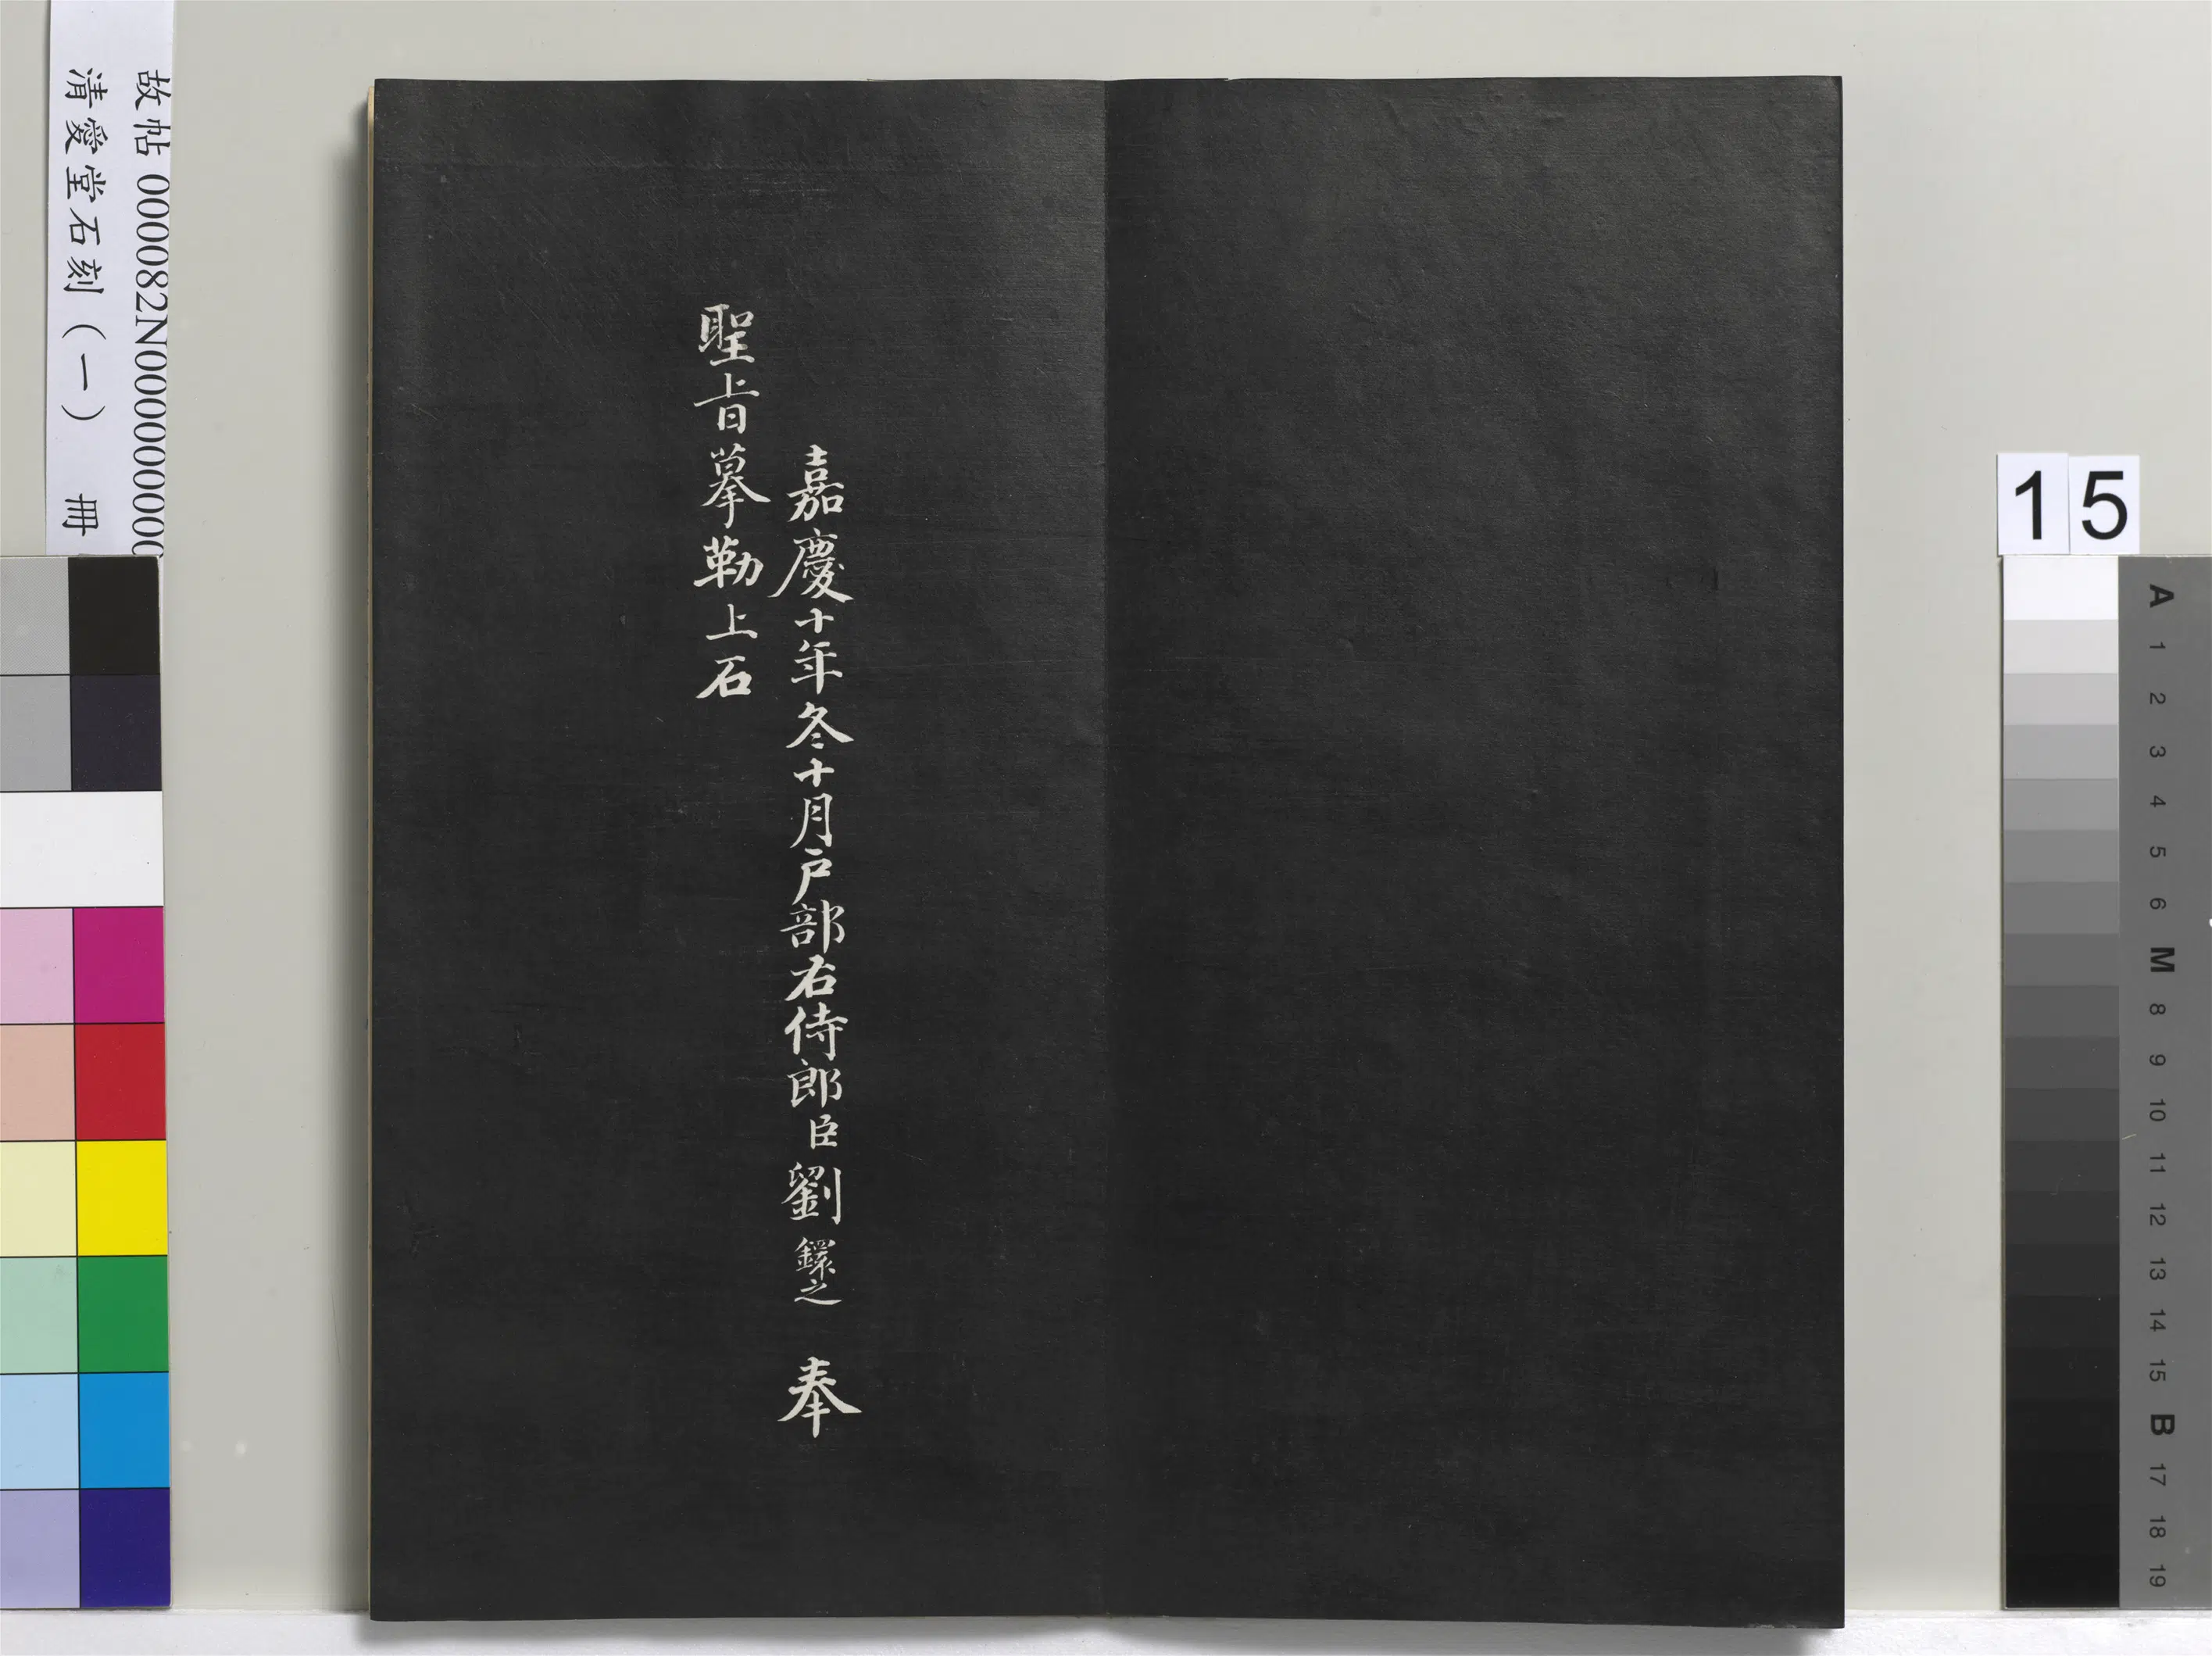 嘉慶十年冬十月戶部右侍郎臣劉鐶之 奉
聖旨摹勒上石
故帖 000082N000000000
清愛堂石刻(一) 冊
15
A
1
2
3
4
5
6
M
8
9
10
11
12
13
14
15
B
17
18
19